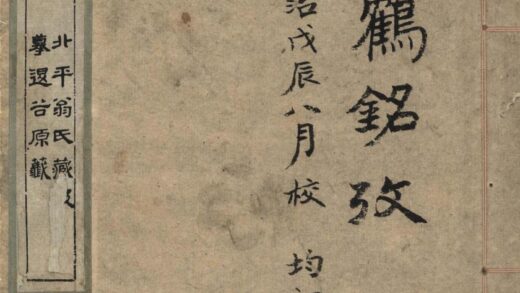 鶴銘攷
治戊辰八月校 均
北平翁氏藏
摹退谷原籤